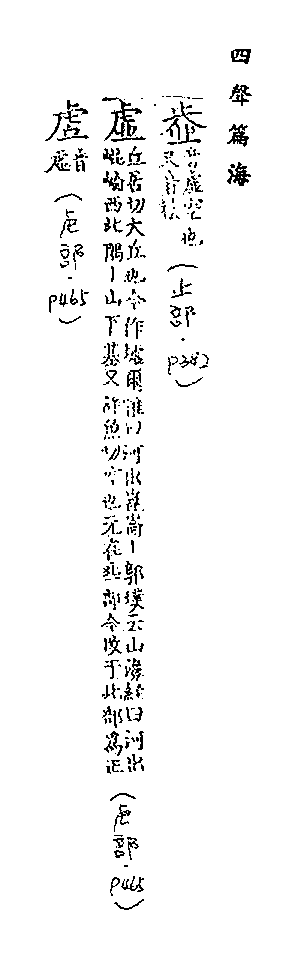 四聲篇海
音虛空也又音 (止部·p382)
虛 丘居切大丘也今作墟爾雅曰河出崑崙丨郭璞云山海經曰河出崐崘西北隅丨山下基又許魚切空也元在丠部今改于此部為正 (虍部·p465)
音虛 (虍部·p465)